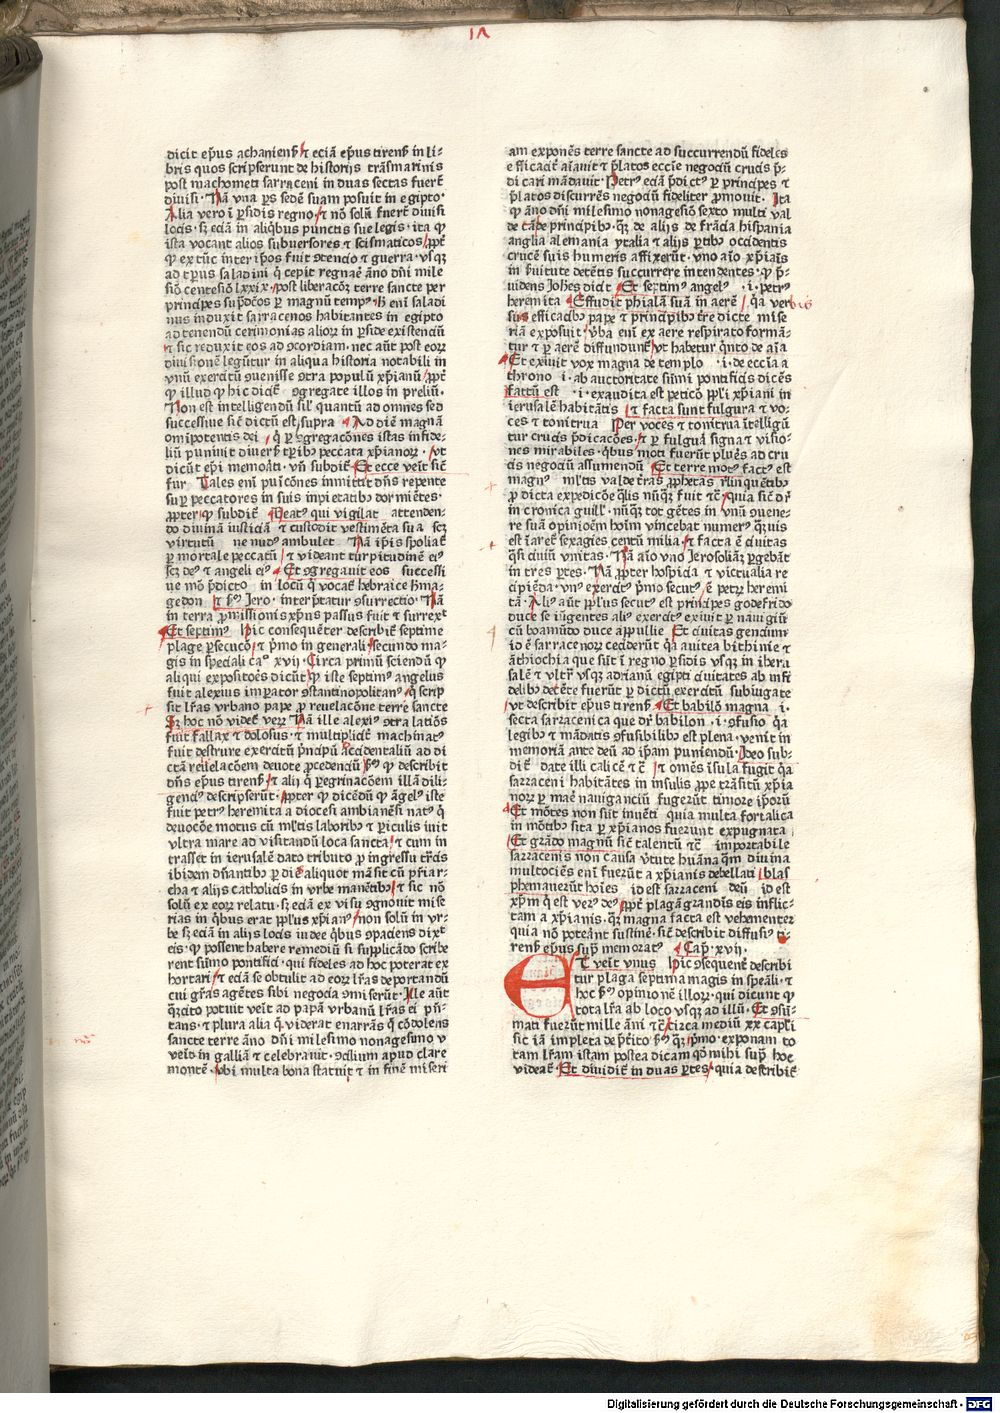 dicit ep̄us achaniens̄ ⁊ eciā ep̄us tirens̄ in li⸗
bris quos scripserunt de historijs trāsmarinis
post machometi sarraceni in duas sectas fuer̄t
diuisi · Nā vna ps̄ sedē suam posuit in egipto ·
Alia vero ī ꝑsidis regno / ⁊ nō solū fuer̄t diuisi
locis · sꝫ eciā in aliqbus punctis sue legis · ita ꝙ
ista vocant alios subuersores ⁊ scismaticos / ꝓpt̄
ꝙ ex tūc inter ip̄os fuit ꝯtencio ⁊ guerra · vsqꝫ
ad tp̄us saladini q̄ cepit regnae āno dn̄i mile
sīo centesīo lxxix · post liberacōꝫ terre sancte per
principes sup̄dc̄os ꝑ magnū tempꝰ · H eni saladi
nus induxit sarracenos habitantes in egipto
ad tenendū cerimonias alioꝝ in ꝑside existenciū
⁊ sic reduxit eos ad ꝯcordiam · nec aūt post eoꝝ
diuisionē legūtur in aliqua historia notabili in
vnū exercitū ꝯuenisse ꝯtra populū xp̄ianū / ꝓpt̄
ꝙ illud ꝙ hic dicit̄ ꝯgregate illos in preliū ·
Non est intelligendū sil̓ quantū ad omnes sed
successiue sic̄ dictū est / supra Ad diē magnā
omīpotentis dei / q̄ ꝑ ꝯgregacōnes istas infide⸗
liū puniuit diuers̄ tp̄ibꝰ peccata xp̄ianoꝝ · / vt
dicūt ep̄i memoāti · vn̄ subdit̄ Et ecce veīt sic̄
fur Tales enī puīcōnes īmittit dn̄s repente
suꝑ peccatores in suis impietatibꝰ dormiētes ·
ꝓpter ꝙ subdit̄ Beatꝰ qui vigilat attenden⸗
do diuinā iusticiā ⁊ custodit vestimēta sua scꝫ
virtutū ne nudꝰ ambulet Nā ip̄is spoliat̄
ꝑ mortale peccatū / ⁊ videant turpitudinē eiꝰ
scꝫ deꝰ ⁊ angeli eiꝰ Et ꝯgregauit eos successi
ue mō p̄dicto in locū q̄ vocat̄ hebraice hma⸗
gedon / ⁊ ẜm Jero · interp̄tatur ꝯsurrectio · Nā
in terra ꝓmissionis xp̄us passus fuit ⁊ surrexᵗ
Et septimꝰ Hic consequēter describit̄ septime
plage ꝑsecucō / ⁊ pͥmo in generali / secundo ma⸗
gis in speciali caᵒ xvij · Circa primū sciendū ꝙ
aliqui expositoēs dicūt / ꝙ iste septimꝰ angelus
fuit alexius imꝑator ꝯstantinopolitanꝰ / q̄ scrip
sit lr̄as vrbano pape ꝓ reuelacōne terre sancte
Sꝫ hoc nō videt̄ veꝝ Nā ille alexiꝰ ꝯtra latiōs
fuit fallax ⁊ dolosus · ⁊ multiplicit̄ machinatꝰ
fuit destruere exercitū p̄ncipū accidentaliū ad di
ctā reuelacōem deuote ꝓcedenciū / ẜm ꝙ describit
dn̄s ep̄us tirens̄ / ⁊ alij q̄ ꝑegrinacōem illā dili⸗
genciꝰ descripserūt · / ꝓpter ꝙ dicēdū ꝙ āgelꝰ iste
fuit petrꝰ heremita a diocesi ambianēsi natꝰ q̄
deuocōne motus cū ml̓tis laboribꝰ ⁊ ꝑiculis iuit
vltra mare ad visitandū loca sancta / ⁊ cum in
trasset in ierusalē dato tributo ꝓ ingressu tr̄cis
ibidem dn̄antibꝰ ꝑ diē aliquot māsit cū pr̄iar⸗
cha ⁊ alijs catholicis in vrbe manētibꝰ / ⁊ sic nō
solū ex eoꝝ relatu · sꝫ eciā ex visu ꝯgnouit mise
rias in qbus erat ppl̓us xp̄ianꝰ / non solū in vr⸗
be sꝫ eciā in alijs locis iudee qbus ꝯpaciens dixᵗ
eis · ꝙ possent habere remediū si supplicādo scribe
rent sūmo pontifici · qui fideles ad hoc poterat ex
hortari / ⁊ eciā se obtulit ad eoꝝ lr̄as deportandū
cui gr̄as agētes sibi negocia ꝯmiserūt · Ille aūt
qꝫcito potuit veīt ad papā vrbanū lr̄as ei pn̄⸗
tans · ⁊ plura alia q̄ viderat enarrās q̄ cōdolens
sancte terre āno dn̄i milesimo nonagesimo v
veīo in galliā ⁊ celebrauit · ꝯciliū apud clare
montē · / vbi multa bona statuit ⁊ in finē miseri
am exponēs terre sancte ad succurrendū fideles
efficacit̄ aīauit ⁊ p̄latos eccīe negociū crucis p̄⸗
dicari mādauit · Petrꝰ eciā p̄dictꝰ ꝑ principes ⁊
p̄latos discurrēs negociū fideliter ꝓmouit · Ita
ꝙ āno dn̄i milesimo nonagesiō sexto multi val
de tā de principibꝰ · qꝫ de alijs de frācia hispania
anglia alemania ytalia ⁊ alijs ꝑtibꝰ occidentis
crucē suis humeris affixerūt · vno aīo xp̄iaīs
in ẜuitute detētis succurrere intendentes · ꝙ p̄⸗
uidens Johēs dicit Et septimꝰ angelꝰ · i · petrꝰ
heremita Effudit phialā suā in aerē / qa verbis
suis efficacibꝰ pape ⁊ principibꝰ tr̄e dicte mise
riā exposuit · v̓ba enī ex aere respirato formā⸗
tur ⁊ ꝑ aerē diffundunt̄ / vt habetur q̄nto de aīa
Et exiuit vox magna de templo · i · de eccīa a
throno · i · ab auctoritate sūmi pontificis dicēs
factū est · i · exaudita est peticō ppl̓i xp̄iani in
ierusalē habitātis / ⁊ facta sunt fulgura ⁊ vo⸗
ces ⁊ tonitrua Per voces ⁊ tonitrua ītelligū
tur crucis p̄dicacōes / ⁊ ꝑ fulgura signa ⁊ visio⸗
nes mirabiles · qbus moti fuerūt plures ad cru
cis negociū assumendū Et terre motꝰ factꝰ est
magnꝰ ml̓tis valde tr̄as ꝓp̄etas r̄linquētibꝰ
ꝓ dicta expedicōe q̄lis nūqꝫ fuit ⁊c̄ / quia sic̄ dr̄
in cronica guill̓ · nūqꝫ tot gētes in vnū ꝯuene⸗
re suā opinioēm hoīm vincebat numerꝰ qꝫuis
est īaret̄ sexagies centū milia · / ⁊ facta ē ciuitas
q̄si ciuiū vnitas · Nā aīo vno Jerosolīaꝫ ꝑgebāt
in tres ꝑtes · Nā ꝓpter hospicia ⁊ victualia re
cipiēda · vnꝰ exercitꝰ pͥmo secutꝰ ē petꝝ heremi
tā · Aliꝰ aūt ppl̓us secutꝰ est principes godefrido
duce seīgentes aliꝰ exercitꝰ exiuit ꝑ nauigiū
cū boamūdo duce appullie Et ciuitas genciū
ido ē sarracenoꝝ ceciderūt qa ciuitea bithinie ⁊
āthiochia que sūt ī regno ꝑsidis vsqꝫ in iheru
salē ⁊ vltr̄ vsqꝫ adrianū egipti ciuitates ab infi
delibꝰ detēte fuerūt ꝑ dictū exercitū subiugate
/ vt describit ep̄us tirens̄ Et babilō magna i ·
secta sarracenica que dr̄ babilon · i · ꝯfusio q̄a
legibꝰ ⁊ mādatis ꝯfusibilibꝰ est plena · venit in
memoriā ante deū ad ip̄am puniendū · Ideo sub⸗
dit̄ date illi calicē ⁊c̄ / ⁊ omēs īsula fugit q̄a
sarraceni habitātes in insulis ꝓpe trāsitū xp̄ia
noꝝ ꝑ mare nauiganciū fugerūt timore ip̄oꝝ
Et mōtes non sūt inuēti quia multa fortalicia
in mōtibꝰ sita ꝑ xp̄ianos fuerunt expugnata
Et grādo magnū sic̄ talentū ⁊c̄ importabile
sarracenis non causa v̓tute huāna qꝫ diuina
multociēs enī fuerūt a xp̄ianis debellati / blas
phemauerūt hoīes id est sarraceni deū id est
xp̄m q̄ est verꝰ deꝰ ꝓpt̄ plagā grandis eis inflic⸗
tam a xp̄ianis · qꝫ magna facta est vehementer
quia nō poterāt sustinē · sic̄ describit diffusiꝰ ti⸗
rens̄ ep̄us supͣ memoratꝰ Cap̄ · xvij ·
ET veīt vnus Hic ꝯsequent̄ describi
tur plaga septima magis in speāli · ⁊
hoc ẜm opinionē illoꝝ · qui dicunt ꝙ
tota lr̄a ab loco vsqꝫ ad illū · Et ꝯsū⸗
mati fuerūt mille āni ⁊c̄ / circa mediū xx capl̓i
sic iā impleta de p̄t̄ito ẜm qꝫ / pͥmo exponam to
tam lr̄am istam postea dicam qd̄ mihi supͣ hoc
videat̄ · Et diuidit̄ in duas ꝑtes / quia describit̄
Digitalisierung gefördert durch die Deutsche Forschungsgemeinschaft · DFG